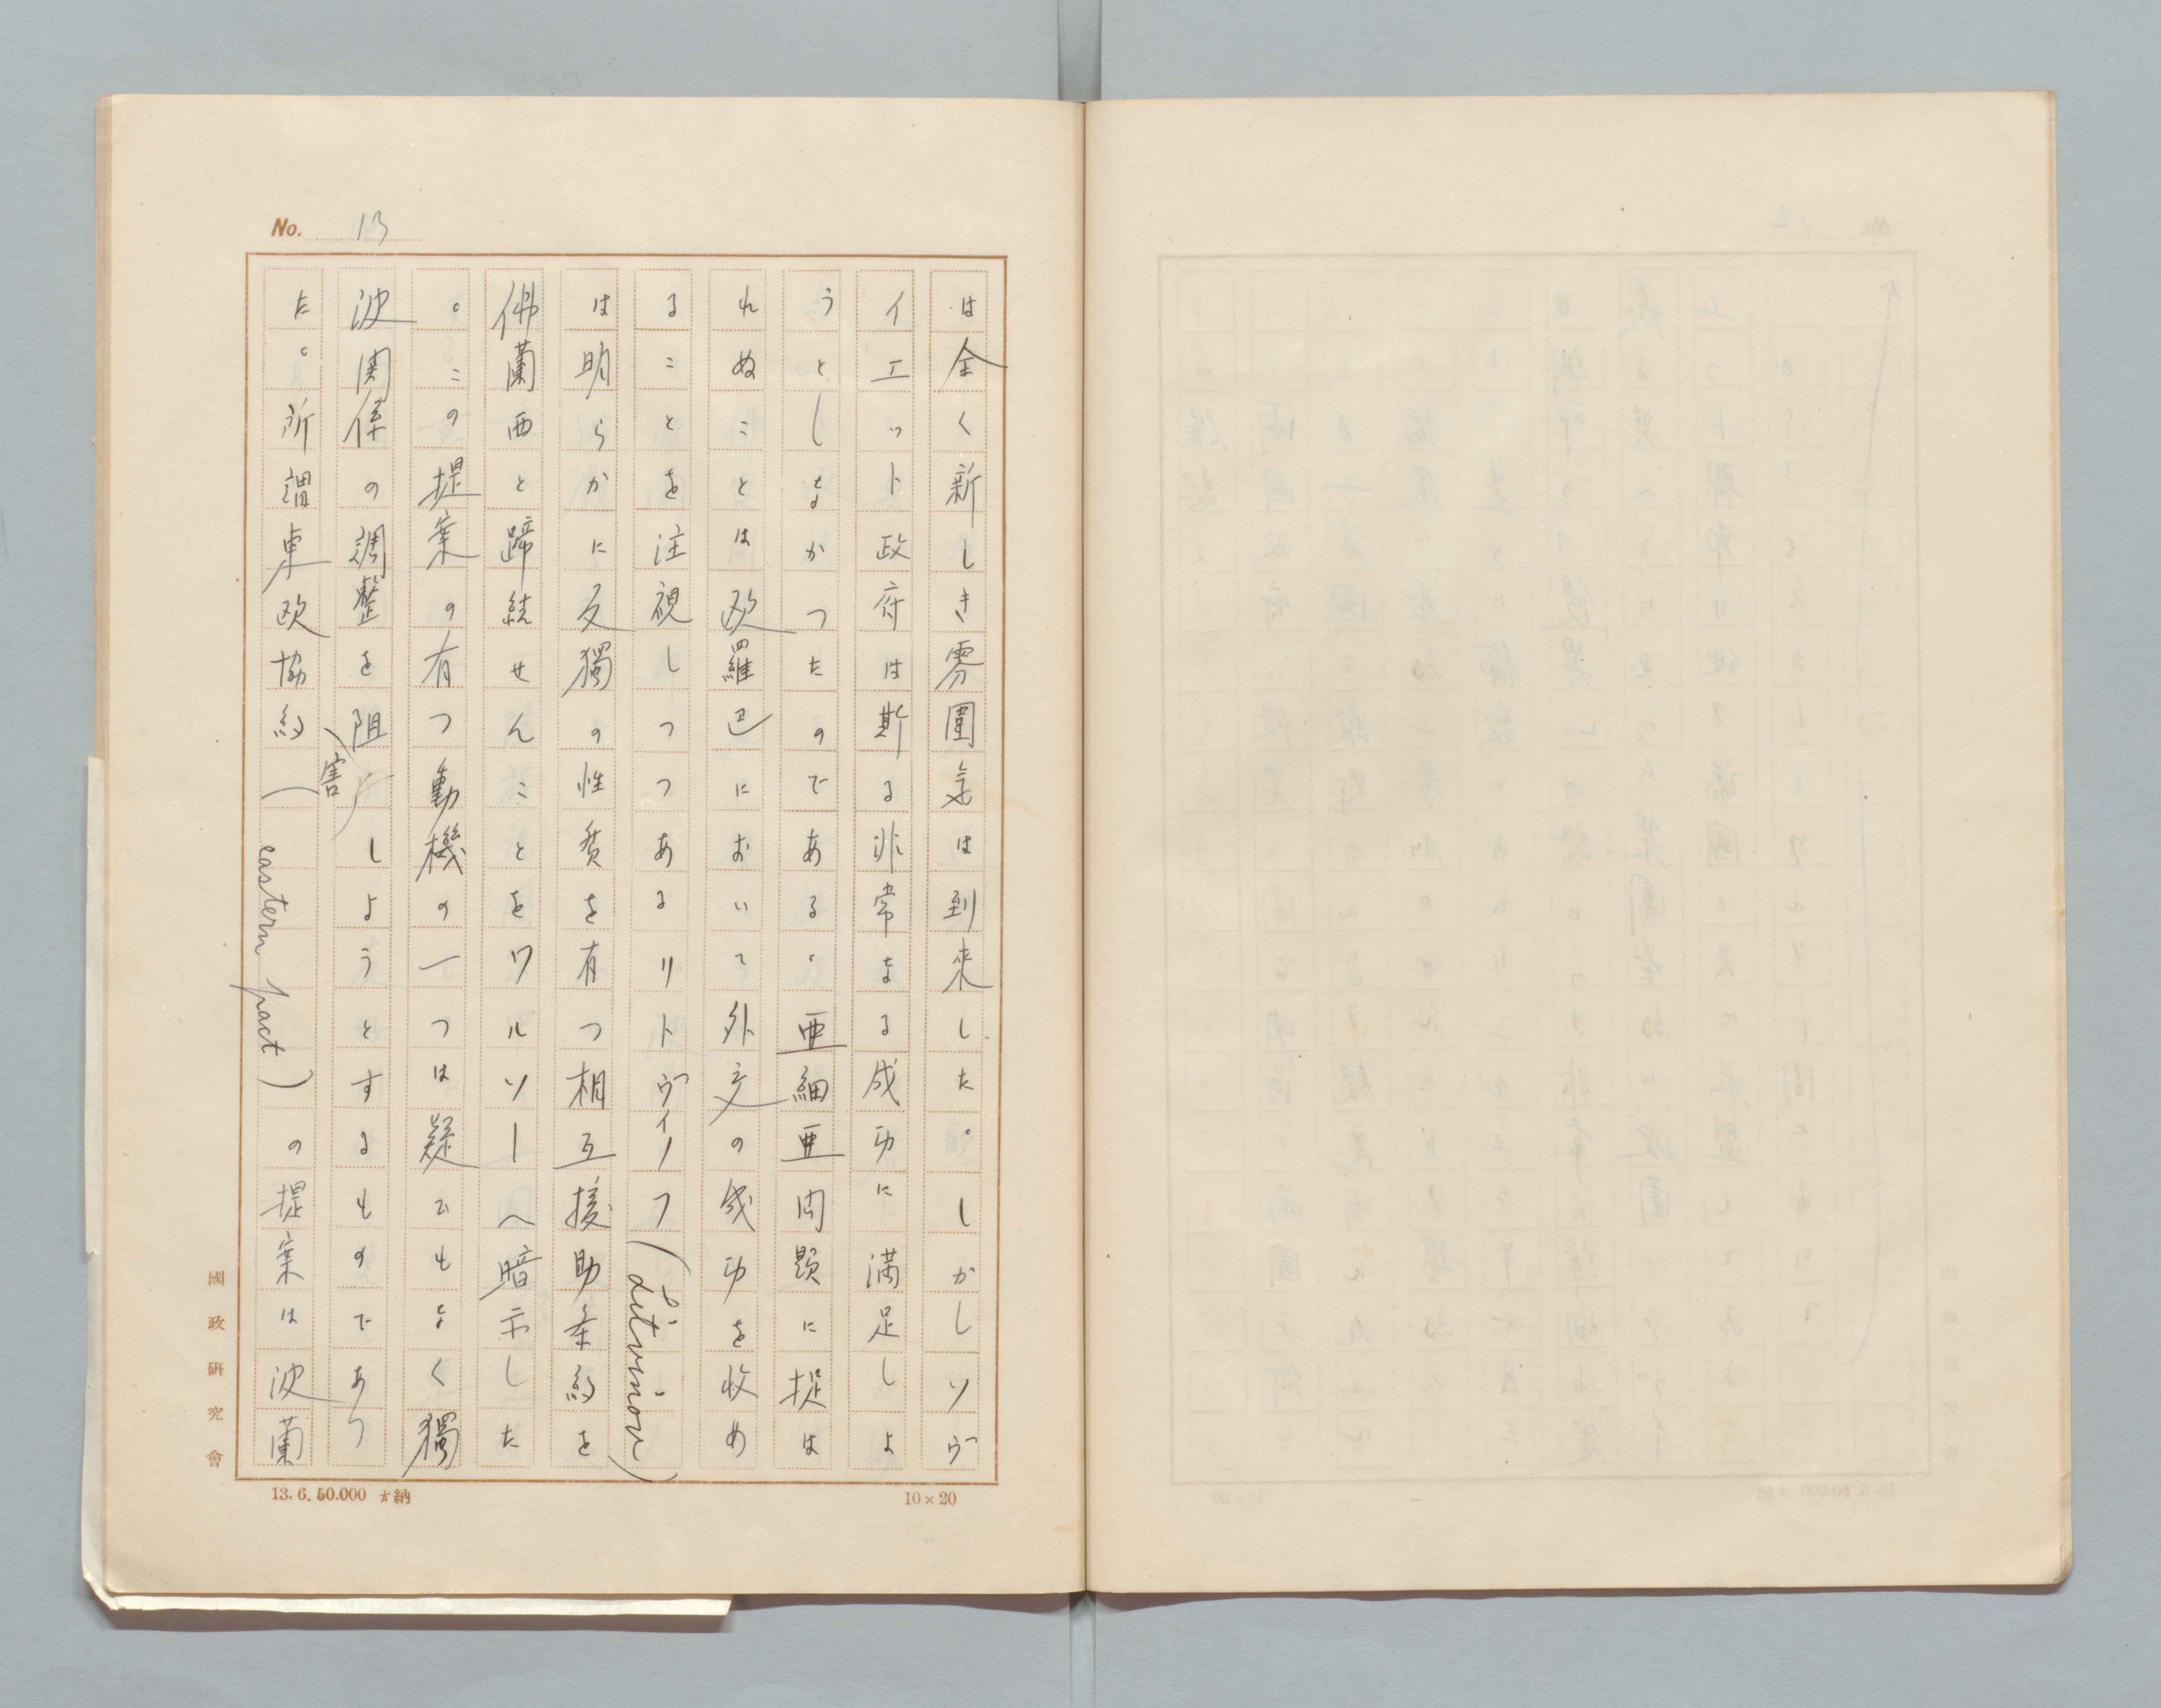 No. 13
は全く新しき雰圍気は到来した。しかしソヴ
イエット政府は斯る非常なる成功に満足しよ
うとしなかつたのである、亜細亜問題に捉は
れぬことは欧羅巴において外交の成功を收め
ることを注視しつつあるリトヴィノフ(Litvinov)
は明らかに反獨の性質を有つ相互援助条約を
佛蘭西と締結せんことをワルソーへ暗示した
。この提案の有つ動機の一つは疑ひもなく獨
波関係の調整を阻害しようとするものであつ
た。所謂東欧協約(eastern pact)の提案は波蘭
國政研究會
13.6.50.000 納
10×20